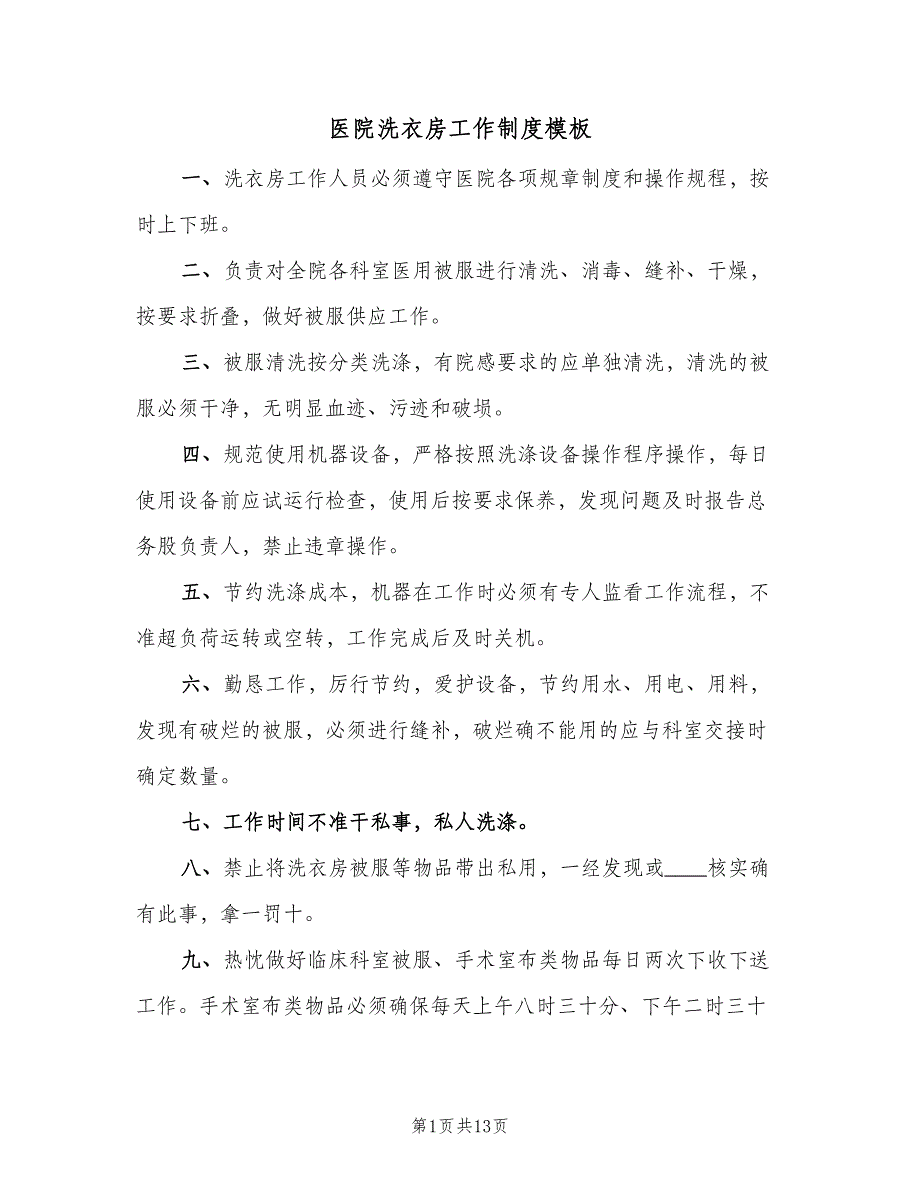 医院洗衣房工作制度模板
一、洗衣房工作人员必须遵守医院各项规章制度和操作规程，按
时上下班。
二、负责对全院各科室医用被服进行清洗、消毒、缝补、干燥，
按要求折叠，做好被服供应工作。
三、被服清洗按分类洗涤，有院感要求的应单独清洗，清洗的被
服必须干净，无明显血迹、污迹和破埙。
四、规范使用机器设备，严格按照洗涤设备操作程序操作，每日
使用设备前应试运行检查，使用后按要求保养，发现问题及时报告总
务股负责人，禁止违章操作。
五、节约洗涤成本，机器在工作时必须有专人监看工作流程，不
准超负荷运转或空转，工作完成后及时关机。
六、勤恳工作，厉行节约，爱护设备，节约用水、用电、用料，
发现有破烂的被服，必须进行缝补，破烂确不能用的应与科室交接时
确定数量。
七、工作时间不准干私事，私人洗涤。
八、禁止将洗衣房被服等物品带出私用，一经发现或____核实确
有此事，拿一罚十。
九、热忱做好临床科室被服、手术室布类物品每日两次下收下送
工作。手术室布类物品必须确保每天上午八时三十分、下午二时三十
第1页共13页